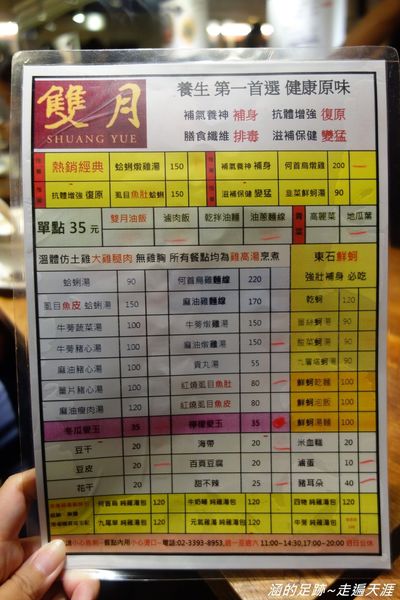 雙月
SHUANG YUE
養生 第一首選 健康原味
補氣養神 補身 抗體增強 復原
膳食纖維 排毒 滋補保健 變猛
熱銷經典 蛤蜊燉雞湯 150 補氣養神 補身 何首烏燉雞 200
抗體增強 復原 虱目魚肚蛤蜊 150 滋補保健 變猛 韭菜鮮蚵湯 90
單點 35 元 雙月油飯 滷肉飯 乾拌油麵 油蔥細麵 高麗菜 地瓜葉
溫體仿土雞大雞腿肉 無雞胸 所有餐點均為雞高湯烹煮
東石鮮蚵
強壯補身 必吃
蛤蜊湯 90 何首烏雞麵線 220 乾蚵 120
虱目魚皮 蛤蜊湯 90 麻油雞麵線 170 90
牛蒡蔬菜湯 50 牛蒡燉雞湯 150 酸菜蚵湯 90
牛蒡豬心湯 50 麻油燉雞湯 150 九層塔蚵湯 90
麻油豬心湯 50 貢丸湯 55 鮮蚵乾麵 100
薑片豬心湯 50 紅燒虱目魚肚 80 鮮蚵泡飯 100
麻油瘦肉湯 50 紅燒虱目魚皮 80 鮮蚵湯麵 100
冬瓜愛玉 35 檸檬愛玉 35 鮮蚵 100
豆干 20 海帶 20 米血糕 20
豆皮 20 百頁豆腐 20 滷蛋 10
花干 20 甜不辣 25 豬耳朵 40
何首烏 純雞湯包 120 牛奶埔 純雞湯包 120 四物 純雞湯包 120
九尾草 純雞湯包 120 元氣雞湯 純雞湯包 120 牛蒡 純雞湯包
小心魚刺~餐點內用小心燙口~電話:02-3393-8953, 週一至週六 11:00~14:30,17:00~20:00 週日公休
涵的足跡~走遍天涯